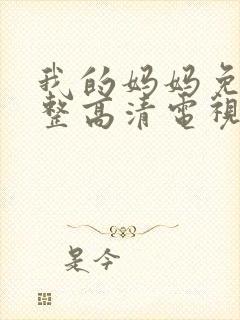 我的妈妈免
整高清電視
是今